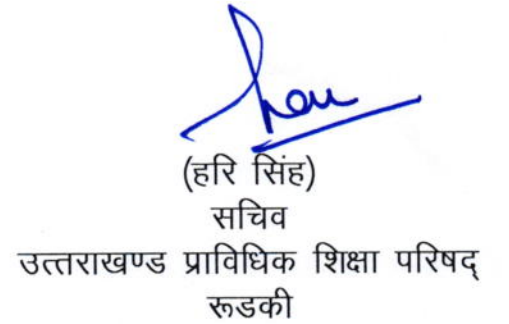 (हरि सिंह)
सचिव
उत्तराखण्ड प्राविधिक शिक्षा परिषद्
रूडकी